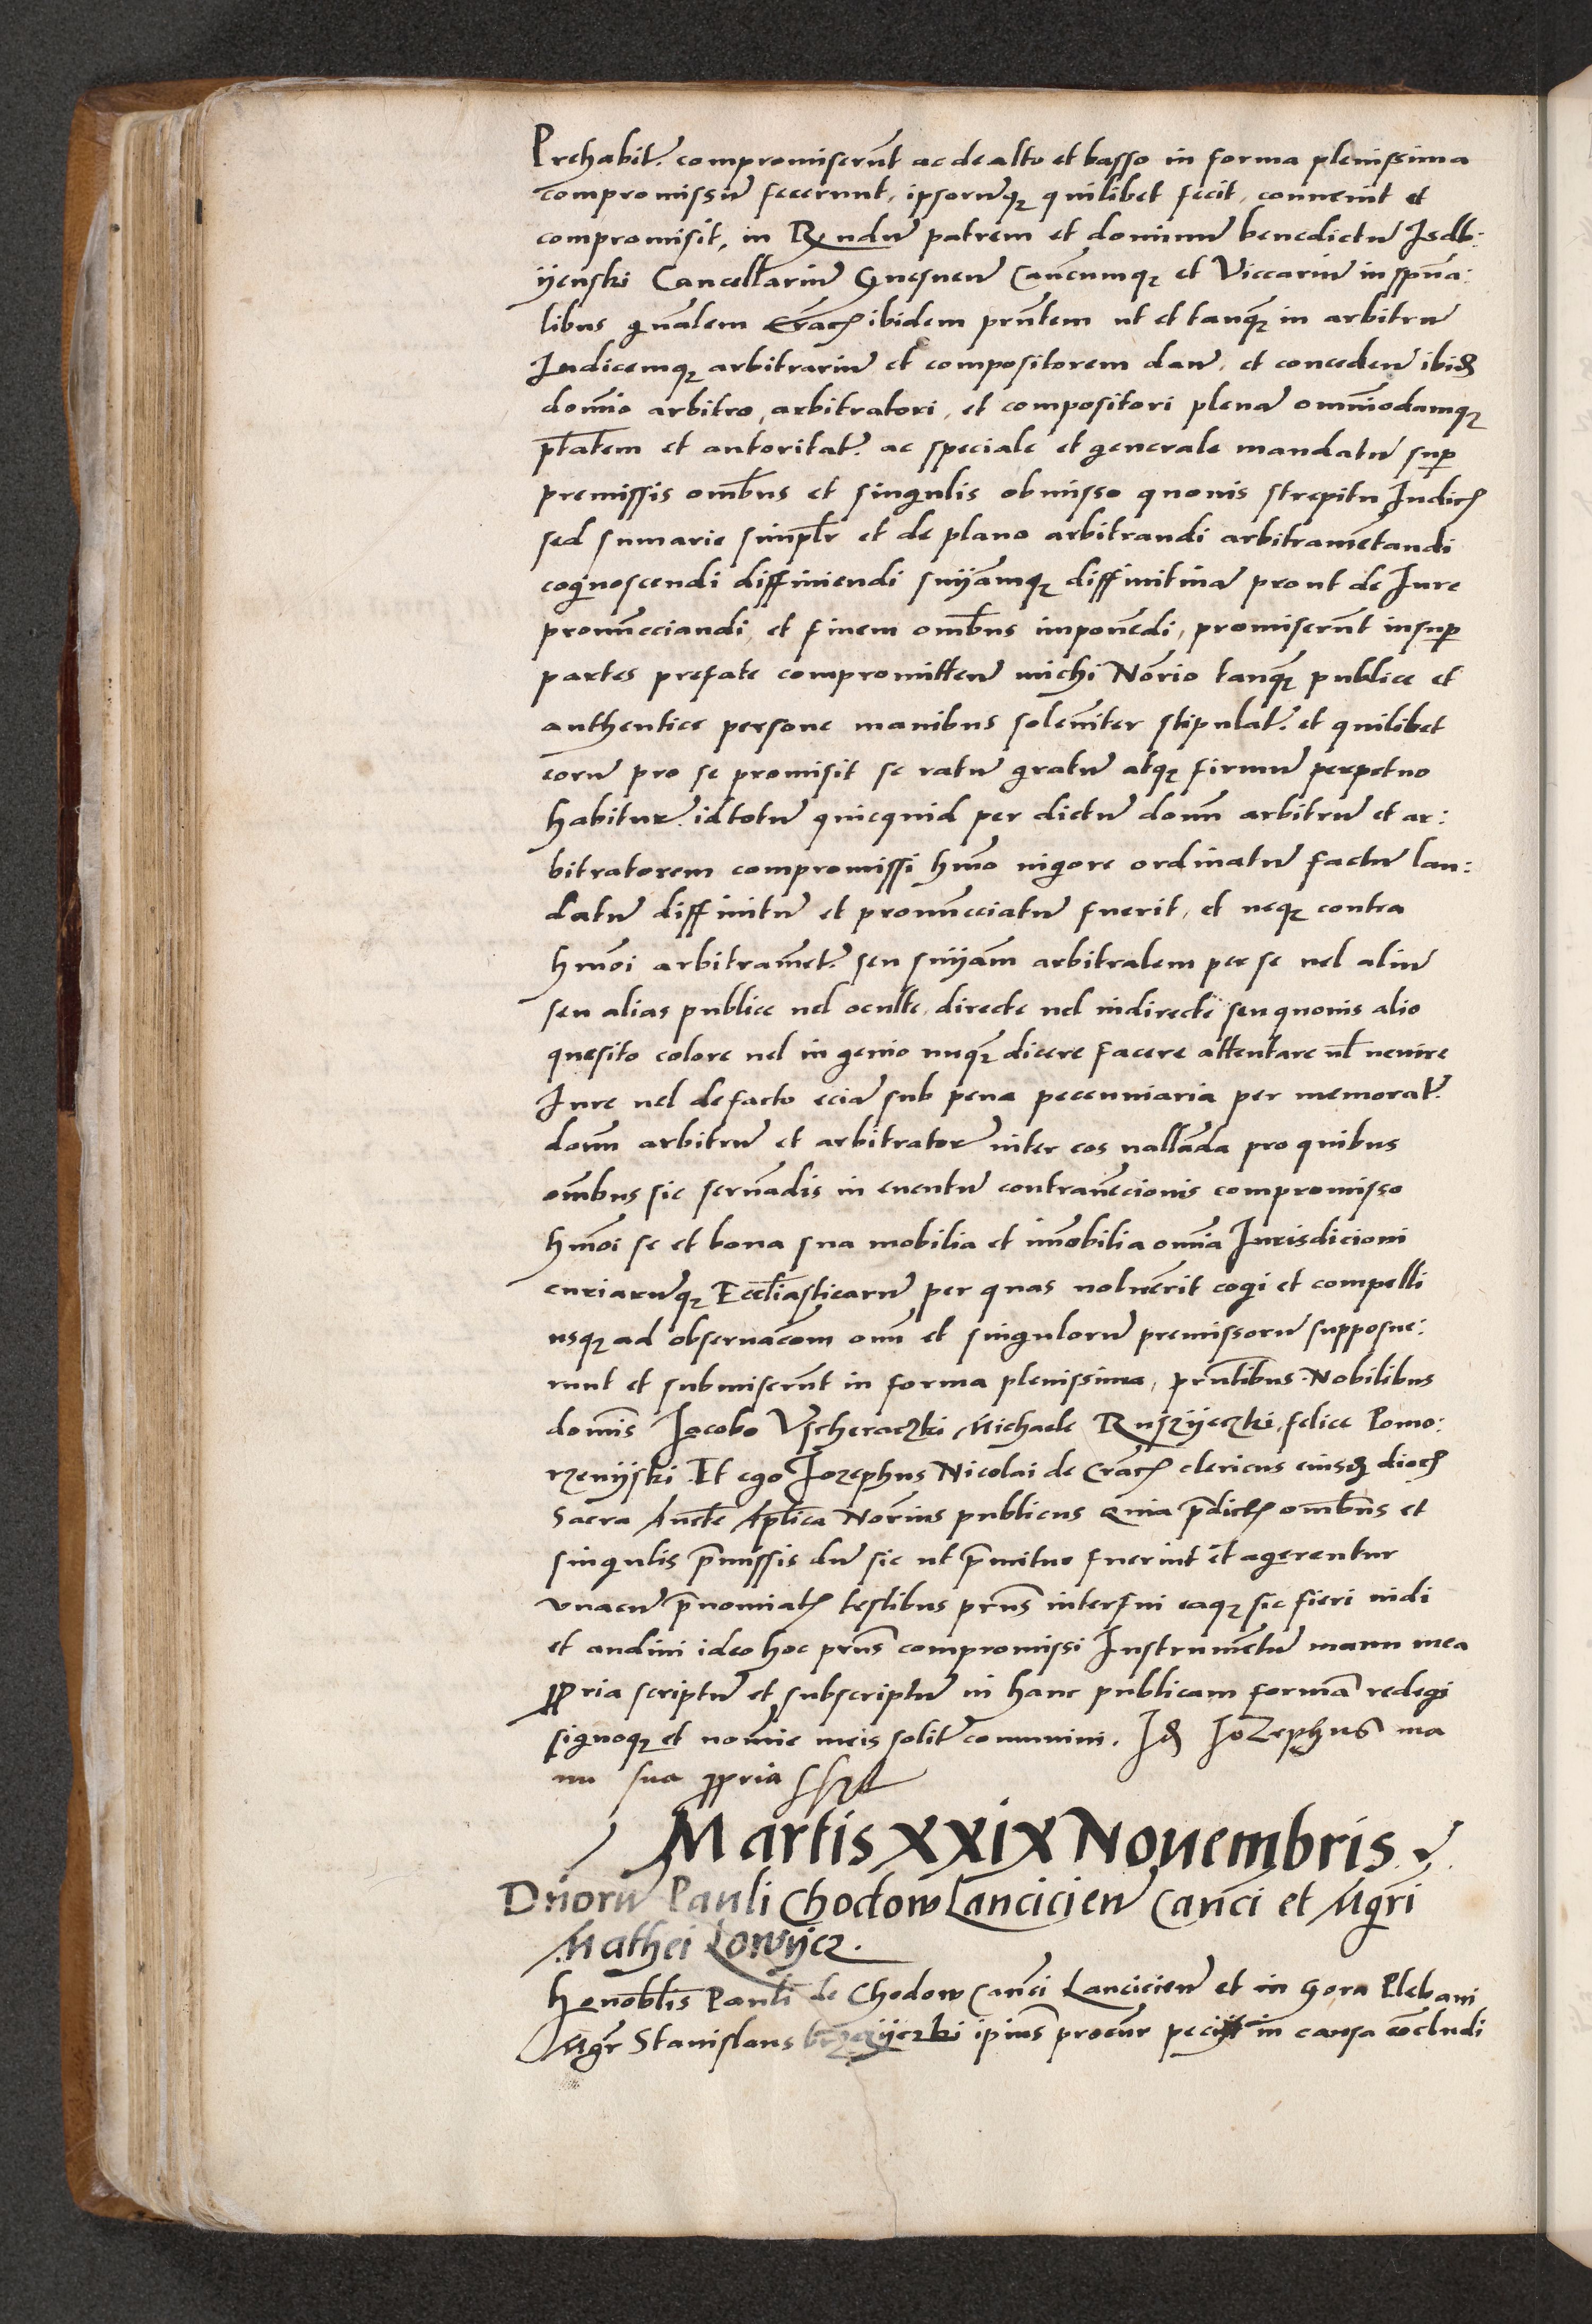 Prehabit. compromiserūt ac de alto et basso in forma plenissima
compromissū fecerunt, ipsorūqꝫ quilibet fecit, convenit et
compromisit, in Rndū patrem et dominū benedictū Isdb:
ijenski Cancellariū Gnesnen̄ Canc̄umqꝫ et Viccariū in spūa:
libus gn̄alem ibidem prn̄tem ut et tanqꝫ in arbitrū
Iudicemqꝫ arbitrariū et compositorem dan̄. et conceden̄ ibid
dom̄io arbitro, arbitratori, et compositori plenā omn̄iodamqꝫ
ptātem et autoritat. ac speciale et generale mandatū sup
premissis omībus et singulis obmisso quouis strepitu Iudicꝭ
sed sumarie simpl̄r et de plano arbitrandi arbitramētandi
cognoscendi diffiniendi snīamqꝫ diffinitiuā prout de Iure
pronūcciandi, et finem omībus imponēdi, promiserūt insup
partes prefate compromitten̄ michi Nōrio tanqꝫ publice et
authentice persone manibus solenīter stipulat. et quilibet
eorū pro se promisit se ratū gratū atqꝫ firmū perpetuo
habitur. id totū quicquid per dictū domn̄ arbitrū et ar:
bitratorem compromissi hm̄o uigore ordinatū factū lau:
datū diffinitū et pronūcciatū fuerit, et neqꝫ contra
hmōi arbitramēt. seu snīam arbitralem per se uel aliū
seu alias publice uel oculte, directe uel indirecte seu quouis alio
quesito colore uel in genio nuqꝫ dicere facere attentare ul̄ uenire
Iure uel de facto eciā sub pena peccuniaria per memorat.
domn̄ arbitrū et arbitratorē inter eos uallāda pro quibus
omībus sic seruādis in euentū contrauēcionis compromisso
hmōi se et bona sua mobilia et im̄obilia omīa Iurisdicioni
curiarūqꝫ Ecclīasticarū per quas uoluerīt cogi et compelli
usqꝫ ad obseruacōm omn̄ et singulorū premissorū supposue:
runt et submiserūt in forma plenissima, prn̄tibus Nobilibus
domīs Jacobo Vscheraczki Michaele Ruszijeczki, felice Pomo:
rzenijski Et ego Jozephus Nicolai de Cracꝭ clericus eiusd diocꝭ
Sacra Auctē Aplīca Nōrius publicus Quia p̄dictꝭ omībus et
singulis p̄missis dū sic ut p̄mittur fuerint et agerentur
vnacū p̄nomiatꝭ testibus prn̄s interfui eaqꝫ sic fieri uidi
et audiui ideo hoc prn̄s compromissi Instrumētū manu mea
ꝓpria scriptū et subscriptū in hanc publicam formā redegi
signoqꝫ et nomīe meis solit. communiui. Id JoZephus ma
nu sua ꝓpria
Martis XXIX Nouembris.
Dn̄orū Pauli Chodow Lancicien̄ Canc̄i et Mgr̄i
Mathei Lowijcz.
Honoblīs Pauli de Chodow Canc̄i Lancicien̄ et in Gora Plebani
Mgr̄ Stanislaus ipius procur̄ pecijt in causa concludi